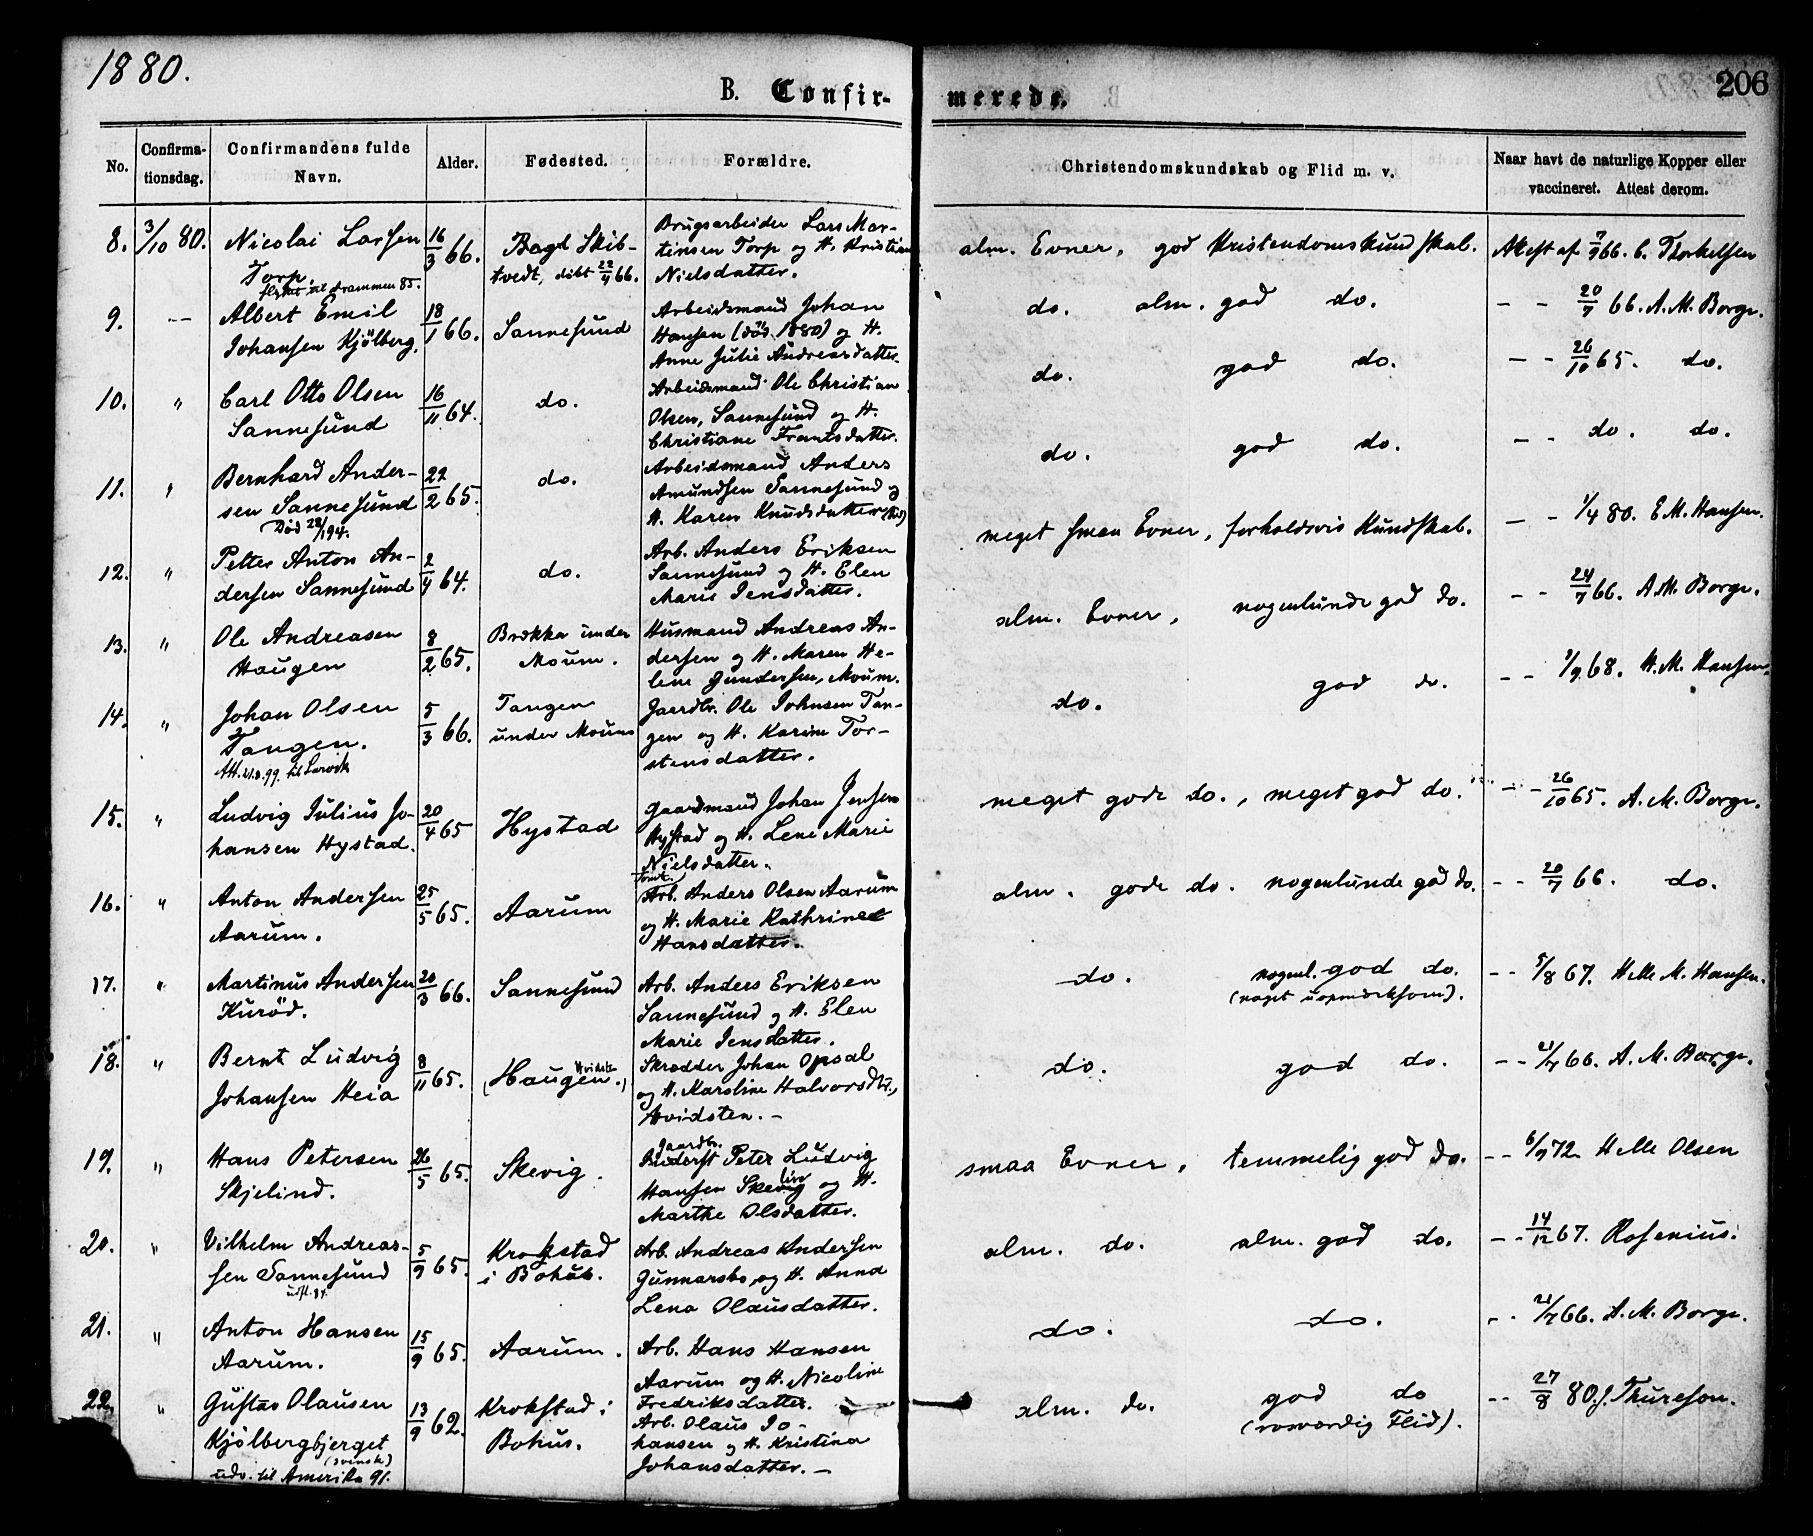 1880.
B. Confir-
merede.
206
No.
Confirma-
tionsdag.
Confirmandens fulde
Navn.
Alder.
Fødested.
Forældre.
Christendomskundskab og Flid m. v.
Naar havt de naturlige Kopper eller
vaccineret. Attest derom.
8. 3/10 80. Nicolai Larsen
Torp.
flyttet til Drammen 85.
16/3 66.
Bagd Skib-
tvedt, døbt 22/4 66.
Brugsarbeider Lars Mar-
tinsen Torp og H. Kristian
Nielsdatter.
alm. Evner, god Kristendomskundskab.
Attest af 7/9 66. C. Thorkelsen
9. -- Albert Emil
Johansen Kjölberg.
18/1 66.
Sannesund
Arbeidsmand Johan
Hansen (död 1880) og H.
Anne Julie Andreasdatter.
do. alm. god do.
- - 20/7 66. A. M. Borge.
10. " Carl Otto Olsen
Sannesund
16/11 64.
do.
Arbeidsmand Ole Christian
Olsen, Sannesund og H.
Christiane Frantsdatter.
do. god do.
- - 26/10 65. do.
11. " Bernhard Ander-
sen Sannesund
Död 28/1 94.
22/2 65.
do.
Arbeidsmand Anders
Amundsen Sannesund og
H. Karen Knudsdatter
do. god do.
- - do. do.
12. " Petter Anton An-
dersen Sannesund
2/4 64.
do.
Arb. Anders Eriksen
Sannesund og H. Elen
Marie Jensdatter.
meget smaa Evner, forholdsvis Kundskab.
- - 1/4 80. E. M. Hansen.
13. " Ole Andreasen
Haugen
8/2 65.
Brække under
Moum.
Husmand Andreas An-
dersen og H. Maren He-
lene Gundersen, Moum.
alm. Evner, nogenlunde god do.
- - 24/7 66. A. M. Borge.
14. " Johan Olsen
Tangen.
Att. 21.8.99. til Larvik
5/3 66.
Tangen
under Moum
Gaardbr. Ole Johnsen Tan-
gen og H. Karine Tor-
stensdatter.
do. god do.
- - 68. H. M. Hansen.
15. " Ludvig Julius Jo-
hansen Hystad.
20/4 65
Hystad
Gaardmand Johan Jensen
Hystad og H. Lene Marie
Nielsdatter.
meget gode do., meget god do.
- - 26/10 65. A. M. Borge.
16. " Anton Andersen
Aarum.
25/5 65.
Aarum
Tomt.
Arb. Anders Olsen Aarum
og H. Marie Kathrine
Hansdatter.
alm. gode do. nogenlunde god do.
- - 20/7 66. do.
17. " Martinus Andersen
Kuröd.
20/3 66.
Sannesund
Arb. Anders Eriksen
Sannesund og H. Elen
Marie Jensdatter.
do. nogenl. god do.
(noget uopmærksom).
- - 5/8 67. Helle M. Hansen.
18. " Bernt Ludvig
Johansen Heia
8/11 65.
(Haugen Hvidste.)
Skrædder Johan Opsal
og H. Karoline Halvorsdtr.,
Hvidsten. -
do. god do.
- - 21/7 66. A. M. Borge.
19. " Hans Petersen
Skjelind.
26/5 65.
Skevig.
Gaardbr.
Peter Ludvig
Hansen Skevig og H.
Marthe Olsdatter.
smaa Evner, temmelig god do.
- - 6/9 72 Helle Olsen
20. " Vilhelm Andreas-
sen Sannesund
udfl. 84.
5/9 65.
Krokstad
i Bohus.
Arb. Andreas Andersen
Gunnarsbo, og H. Anna
Lena Olausdatter.
alm. do. alm. god do.
- - 14/12 67. Rosenius.
21. " Anton Hansen
Aarum.
15/9 65.
Aarum.
Arb. Hans Hansen
Aarum og H. Nicoline
Fredriksdatter.
do. do.
- - 21/7 66. A. M. Borge.
22. " Gustav Olausen
Kjölbergbjerget
(svensk)
udv. til Amerika 91.
13/9 62.
Krokstad i
Bohus.
Arb. Olaus Jo-
hansen og H. Kristina
Johansdatter. -
alm. do. god do
(rosværdig Flid).
- - 27/8 80. J. Thureson.